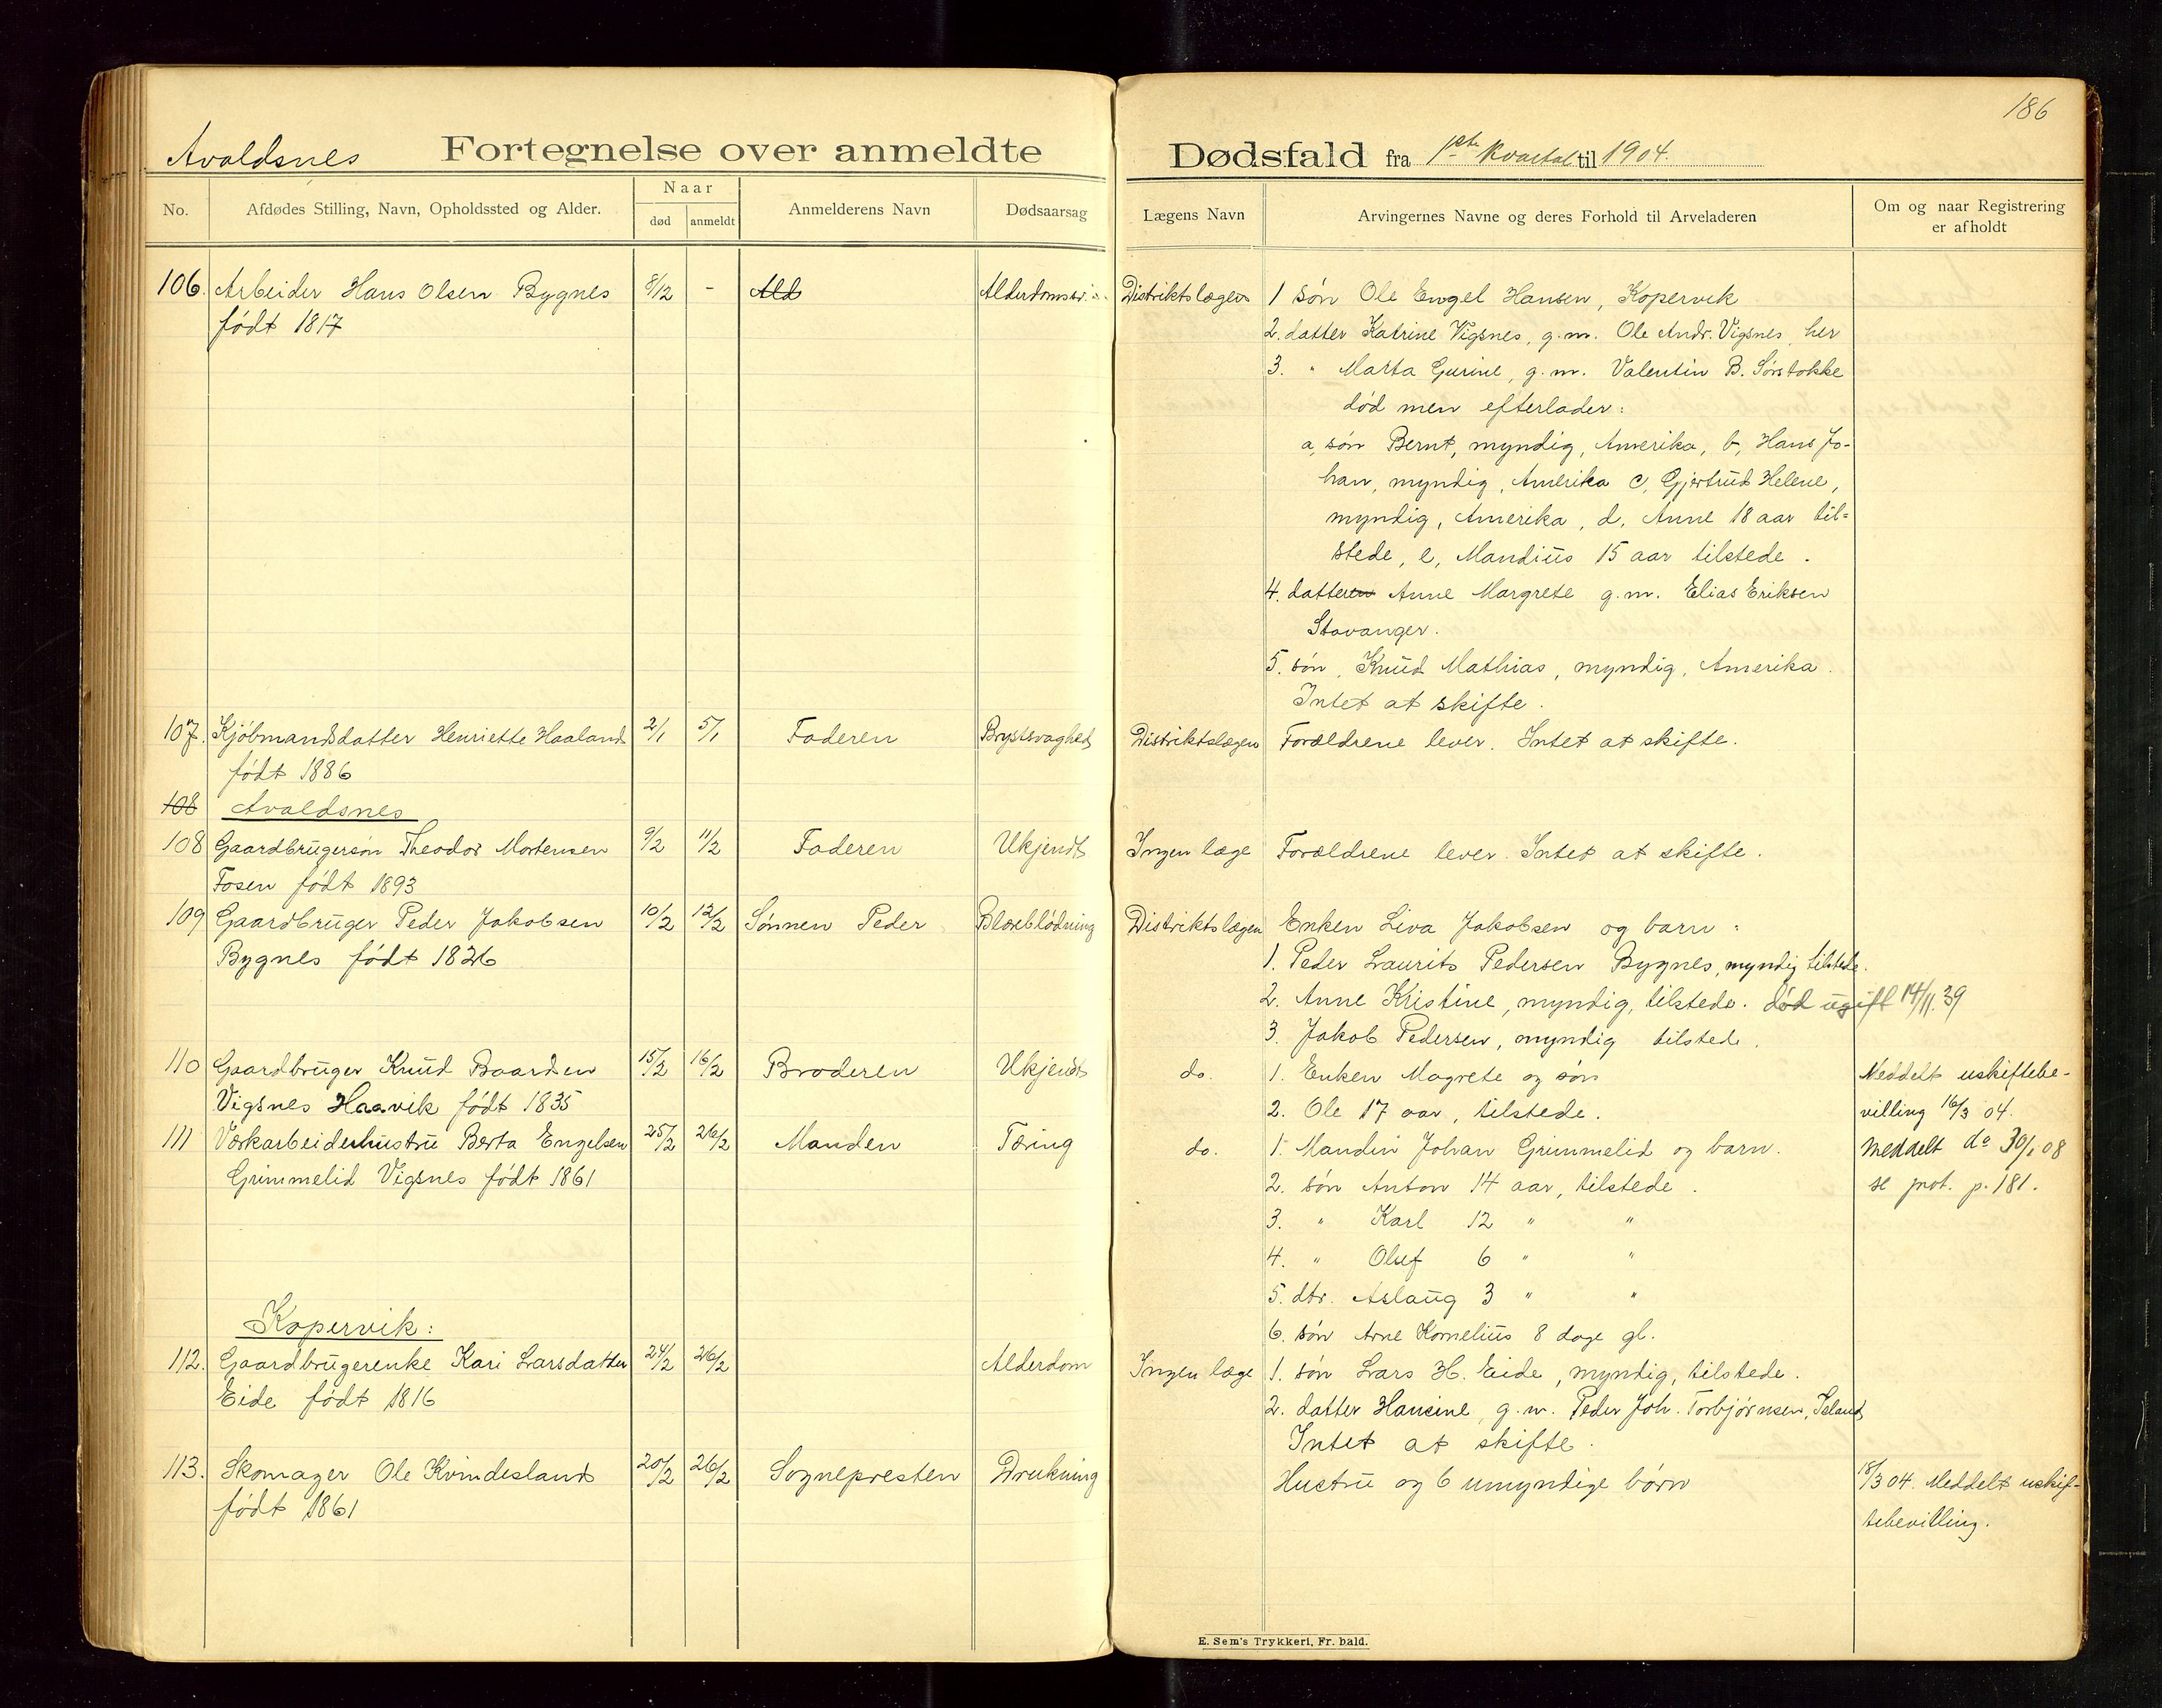 186
Avaldsnes Fortegnelse over anmeldte Dødsfald fra 1ste Kvartal til 1904.
No. Afdødes Stilling, Navn, Opholdssted og Alder. Naar død anmeldt Anmelderens Navn Dødsaarsag Lægens Navn Arvingernes Navne og deres Forhold til Arveladeren Om og naar Registrering er afholdt
106. Arbeider Hans Olsen Bygnes 8/12 - Ald Distriktslægen 1 søn Ole Engel Hansen, Kopervik
født 1817 2. datter Katrine Vigsnes, g.m. Ole Andr. Vigsnes, her
3. " Marta Gurine, g.m. Valentin B. Sørstokke
død men efterlader:
a, søn Bernt, myndig, Amerika, b, Hans Jo-
han, myndig, Amerika c, Gjertrud Helene,
myndig, Amerika, d, Anne 18 aar til=
stede, e, Mandius 15 aar tilstede.
4. datteren Anne Margrete g.m. Elias Eriksen
Stavanger.
5. søn, Knud Mathias, myndig, Amerika.
Intet at skifte.
107. Kjøbmandsdatter Henriette Haaland 2/1 5/1 Faderen Brystsvaghed Distriktslægen Forældrene lever. Intet at skifte.
født 1886
108 Avaldsnes
108 Gaardbrugersøn Theodor Mortensen 9/2 11/2 Faderen Ukjendt Ingen læge Forældrene lever. Intet at skifte.
Fosen født 1893
109 Gaardbruger Peder Jakobsen 10/2 12/2 Sønnen Peder Blæreblødning Distriktslægen Enken Liva Jakobsen og barn:
Bygnes født 1826 1. Peder Laurits Pedersen Bygnes, myndig tilstede.
2. Anne Kristine, myndig, tilstede. død ugift 14/11.39
3. Jakob Pedersen, myndig tilstede.
110 Gaardbruger Knud Baardsen 15/2 16/2 Broderen Ukjendt do. 1. Enken Magrete og søn Meddelt uskiftebe-
Vigsnes Haavik født 1835 2. Ole 17 aar, tilstede. villing 16/3 04.
111 Værkarbeiderhustru Berta Engelsen 25/2 26/2 Manden Tæring do. 1. Manden Johan Grimmelid og barn. Meddelt do 30/1 08
Grimmelid Vigsnes født 1861 2. søn Anton 14 aar, tilstede. se prot. p. 181.
3. " Karl 12 " "
4. " Oluf 6 " "
5. dtr. Aslaug 3 " "
Kopervik:
6. søn Arne Kornelius 8 dage gl.
112. Gaardbrugerenke Kari Larsdatter 24/2 26/2 Alderdom Ingen læge 1. søn Lars H. Eide, myndig, tilstede.
Eide født 1816 2. datter Hansine, g.m. Peder Joh. Torbjørnsen, Island
Intet at skifte.
113. Skomager Ole Kvindesland 20/2 26/2 Sognepresten Drukning Hustru og 6 umyndige børn 18/3 04. Meddelt uskif-
født 1861 tebevilling.
E. Sem's Trykkeri, Fr. hald.